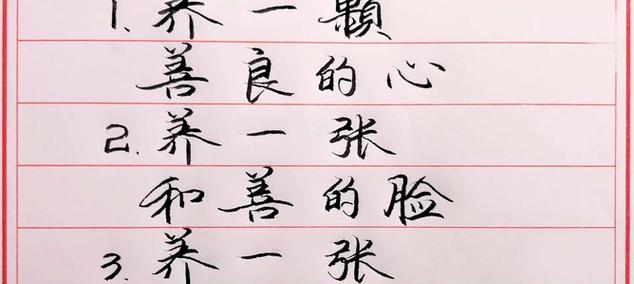 1. 养一颗
善良的心
2. 养一张
和善的脸
3. 养一张